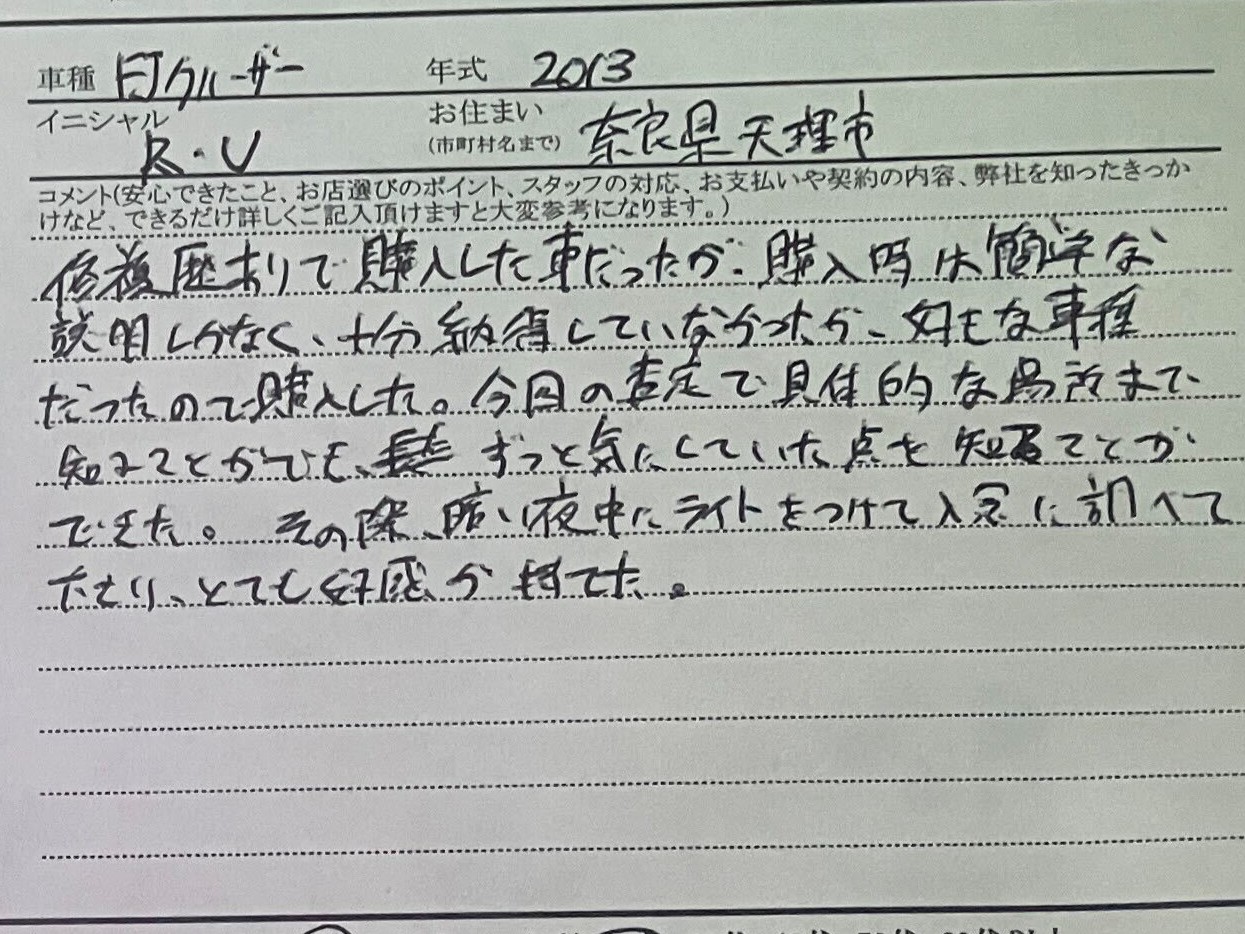 車種 FJクルーザー 年式 2013
イニシャル R.U お住まい(市町村名まで) 奈良県天理市
コメント(安心できたこと、お店選びのポイント、スタッフの対応、お支払いや契約の内容、弊社を知ったきっか
けなど、できるだけ詳しくご記入頂けますと大変参考になります。)
修復歴ありで購入した車だったが、購入時は簡単な
説明しかなく、十分納得していなかったが、好きな車種
だったので購入した。今回の査定で具体的な場所まで
知ることができ、ずっと気にしていた点を知ることが
できた。その際、暗い夜中にライトをつけて入念に調べて
たさり、とても好感が持てた。